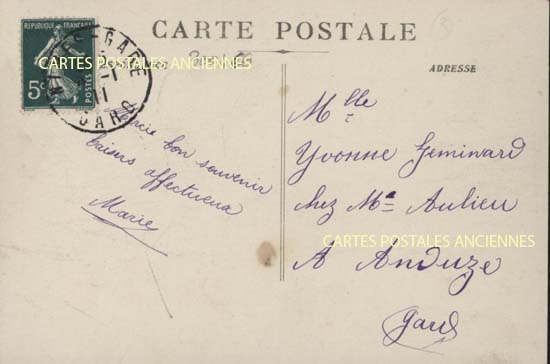 CARTE POSTALE
ADRESSE
REPUBLIQUE FRANÇAISE
5c
GARE
GARD
CARTES POSTALES ANCIENNES
bon souvenir
baisers affectueux
Marie
Mlle
Yvonne Geminard
chez Me Aulieu
CARTES POSTALES ANCIENNES
A Anduze
Gard